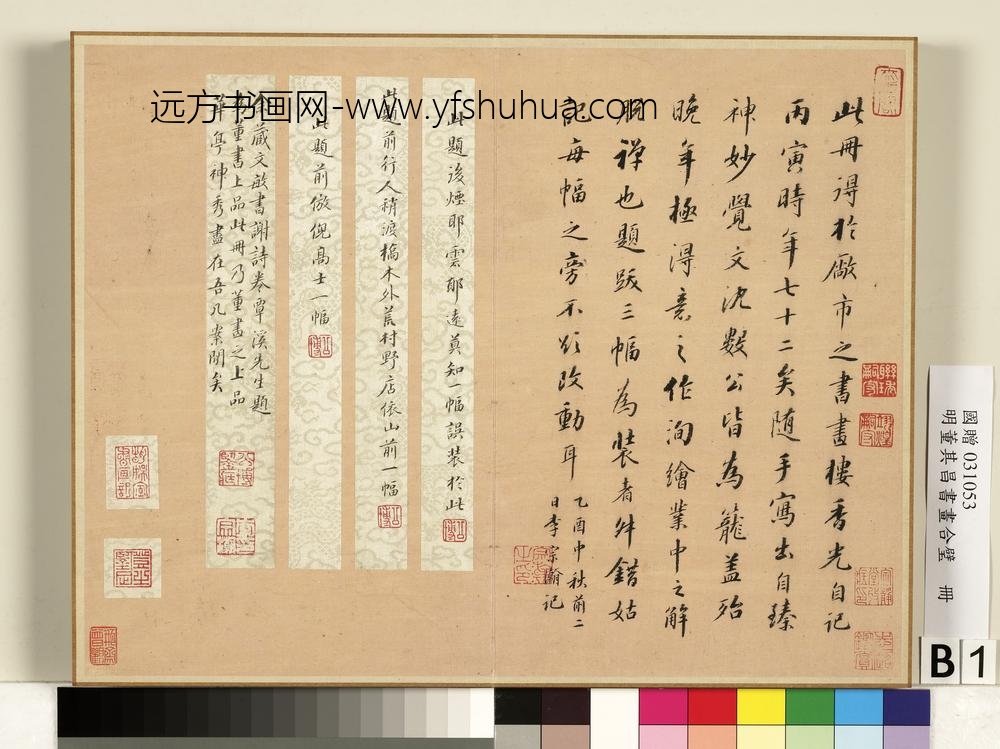 远方书画网-www.yfshuhua.com
此冊得於廠市之書畫樓香光自記
丙寅時年七十二矣随手寫出自臻
神妙覺文沈數公皆為籠蓋殆
晚年極得意之作洵繪業中之解
脫禅也題跋三幅為裝者舛錯姑
記每幅之旁不欲改動耳
乙酉中秋前二
日李宗瀚記
此題後煙耶雲耶遠莫知一幅誤装於此
此題前行人稍渡橋木外荒村野店依山前一幅
此題前倣倪高士一幅
藏文敏書謝詩卷覃溪先生題
董書上品此冊乃董畫之上品
華亭神秀盡在吾几案間矣
國贈 031053
明董其昌書畫合璧 冊
B 1